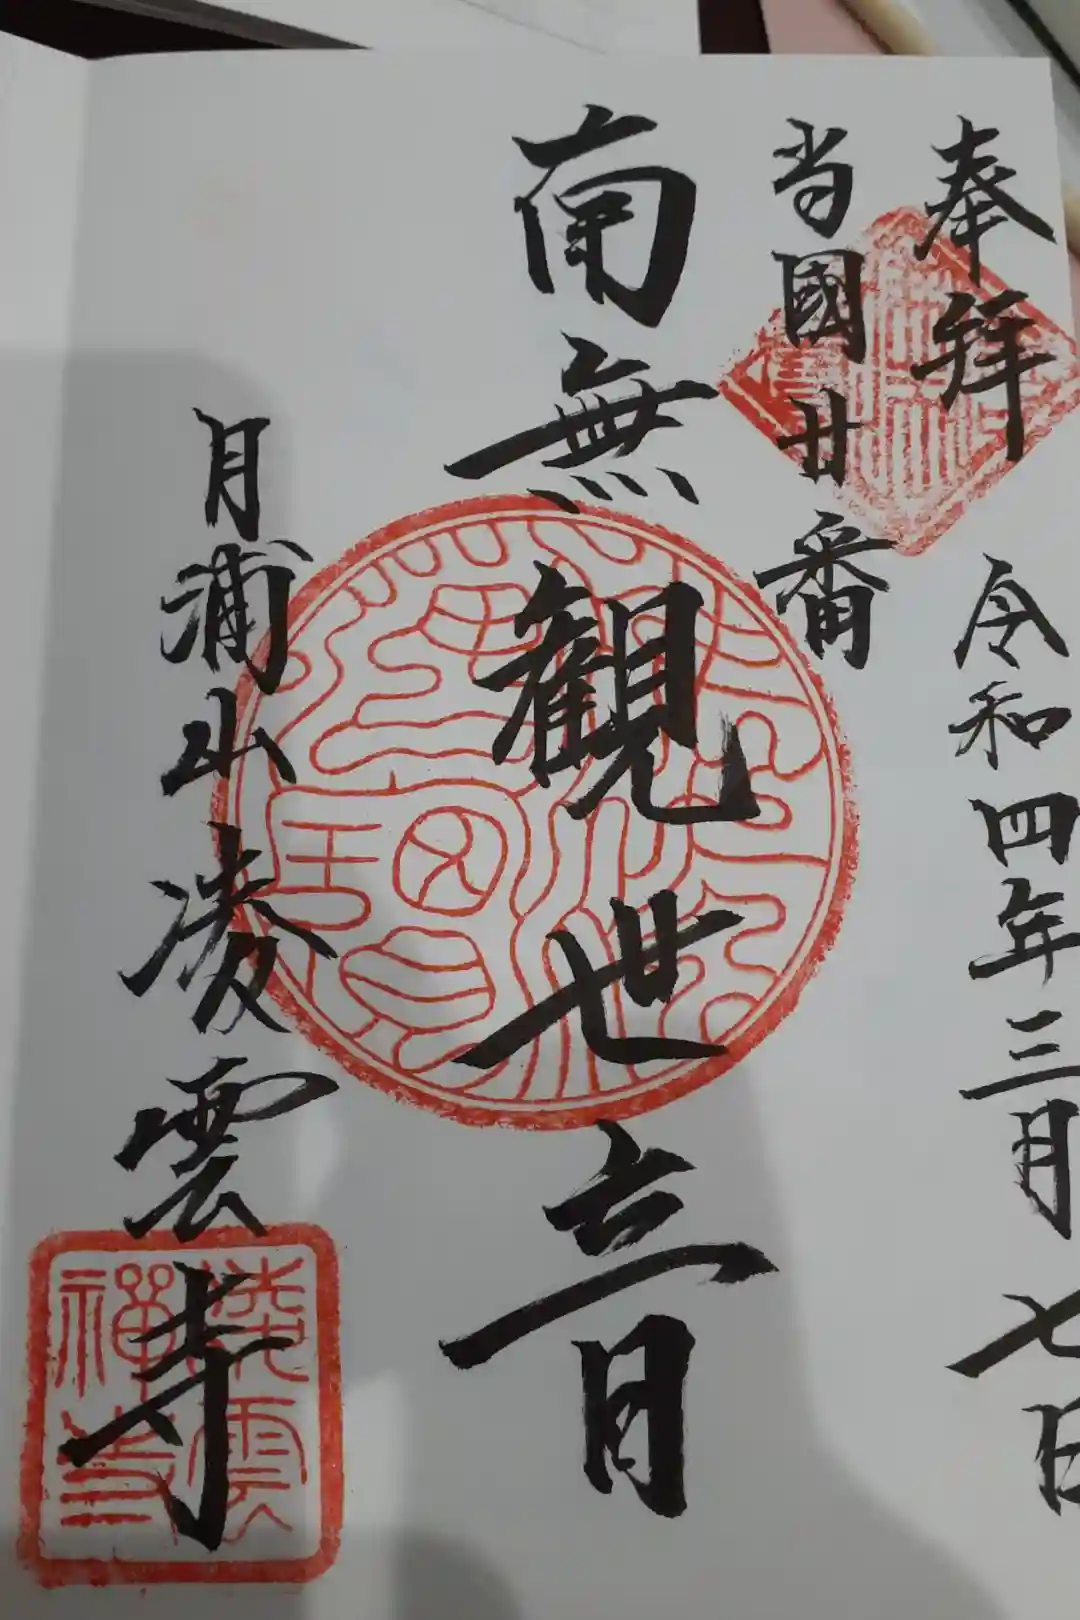 奉拜
令和四年三月七日
当國廿番
南無観世音
月浦山凌雲寺
凌雲
禅寺